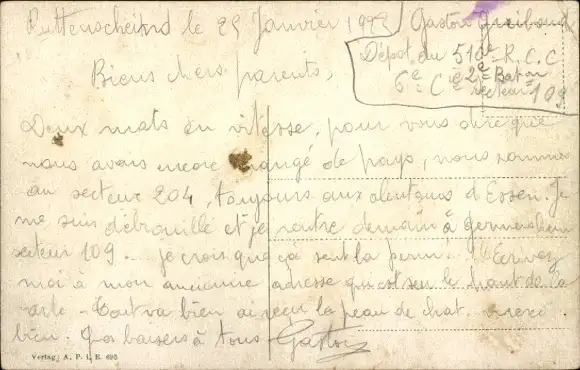 Ruttenscheid le 25 Janvier 192
Gaston
Dépot du 516e R.C.C
6e Cie 2e Baton
secteur 109
Biens chers parents,
Deux mots en vitesse, pour vous dire que
nous avons encore changé de pays, nous sommes
au secteur 204, toujours aux alentours d'Essen. Je
me suis débrouillé et je rentre demain à
secteur 109... je crois que çà sent la Ecrivez
moi à mon ancienne adresse qui est sur le haut de la
carte - Tout va bien ai reçu la peau de chat. merci
bien. Gros baisers à tous Gaston
Verlag: A. P. i. E. 693